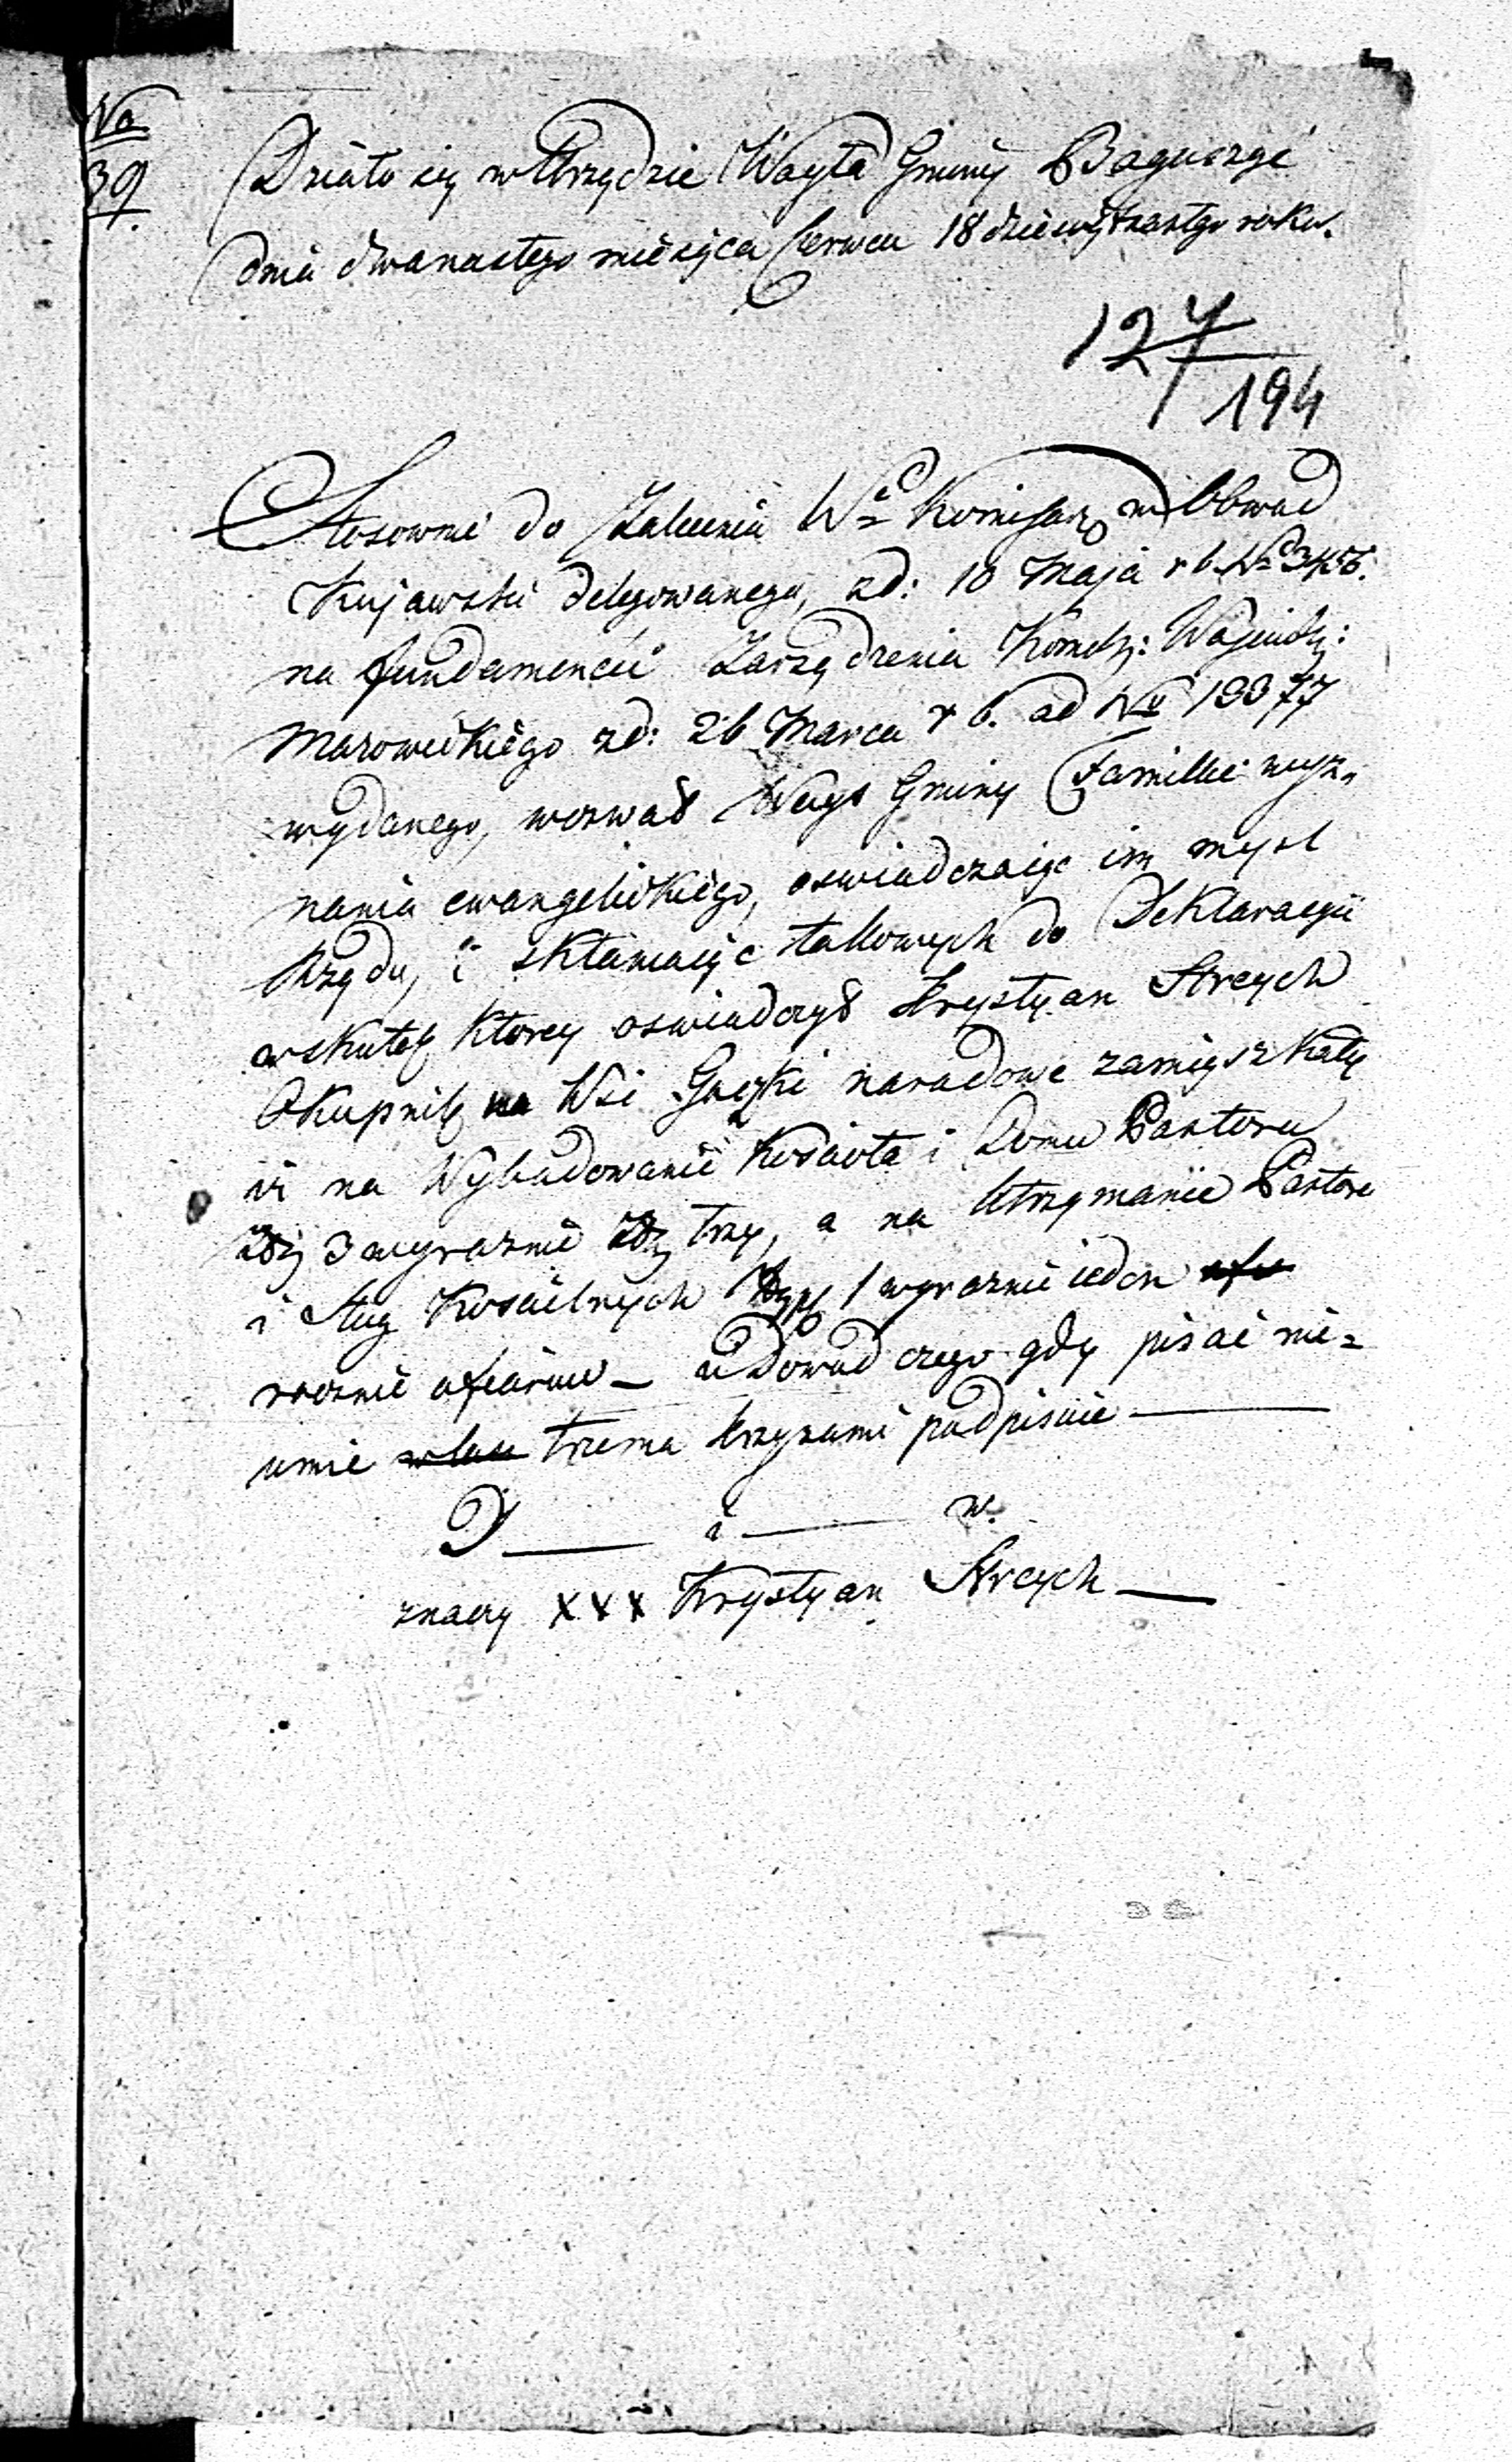 No
39.
Działo się w Urzędzie Woyta Gminy
dnia dwunastego miesięca Czerwca 18 dziewiętnastgo roku.
127
194
Stosownie do Zalecenia Wo Komissarza w Obwod
Kujawski delegowanego, zd: 10 Maja r b. No
na fundamencie Zarządzenia Komiss: Wojewódz:
Mazowieckiego zd: 26 Marca r b. ad No 19377
wydanego, wezwał Woyt Gminy Familie wyz-
nania ewangelickiego, oswiadczaiąc im mysl
Rządu, i skłaniaiąc takowych do Deklaracyii
wskutek ktorey oswiadczył Krystyan Streych
Okupnik na Wsi narodowe zamięszkały
iż na Wybudowanie Kościoła i Domu Pastora
złł 3 wyraznie złł trzy, a na Utrzymanie Pastora
i Sług Kościelnych złł 1 wyraznie ieden
rocznie ofiaruie – na Dowod czego gdy pisać nie=
umie trzema krzyzami podpisuie —
D — i — w.
znaery xxx Krystyan Streych —